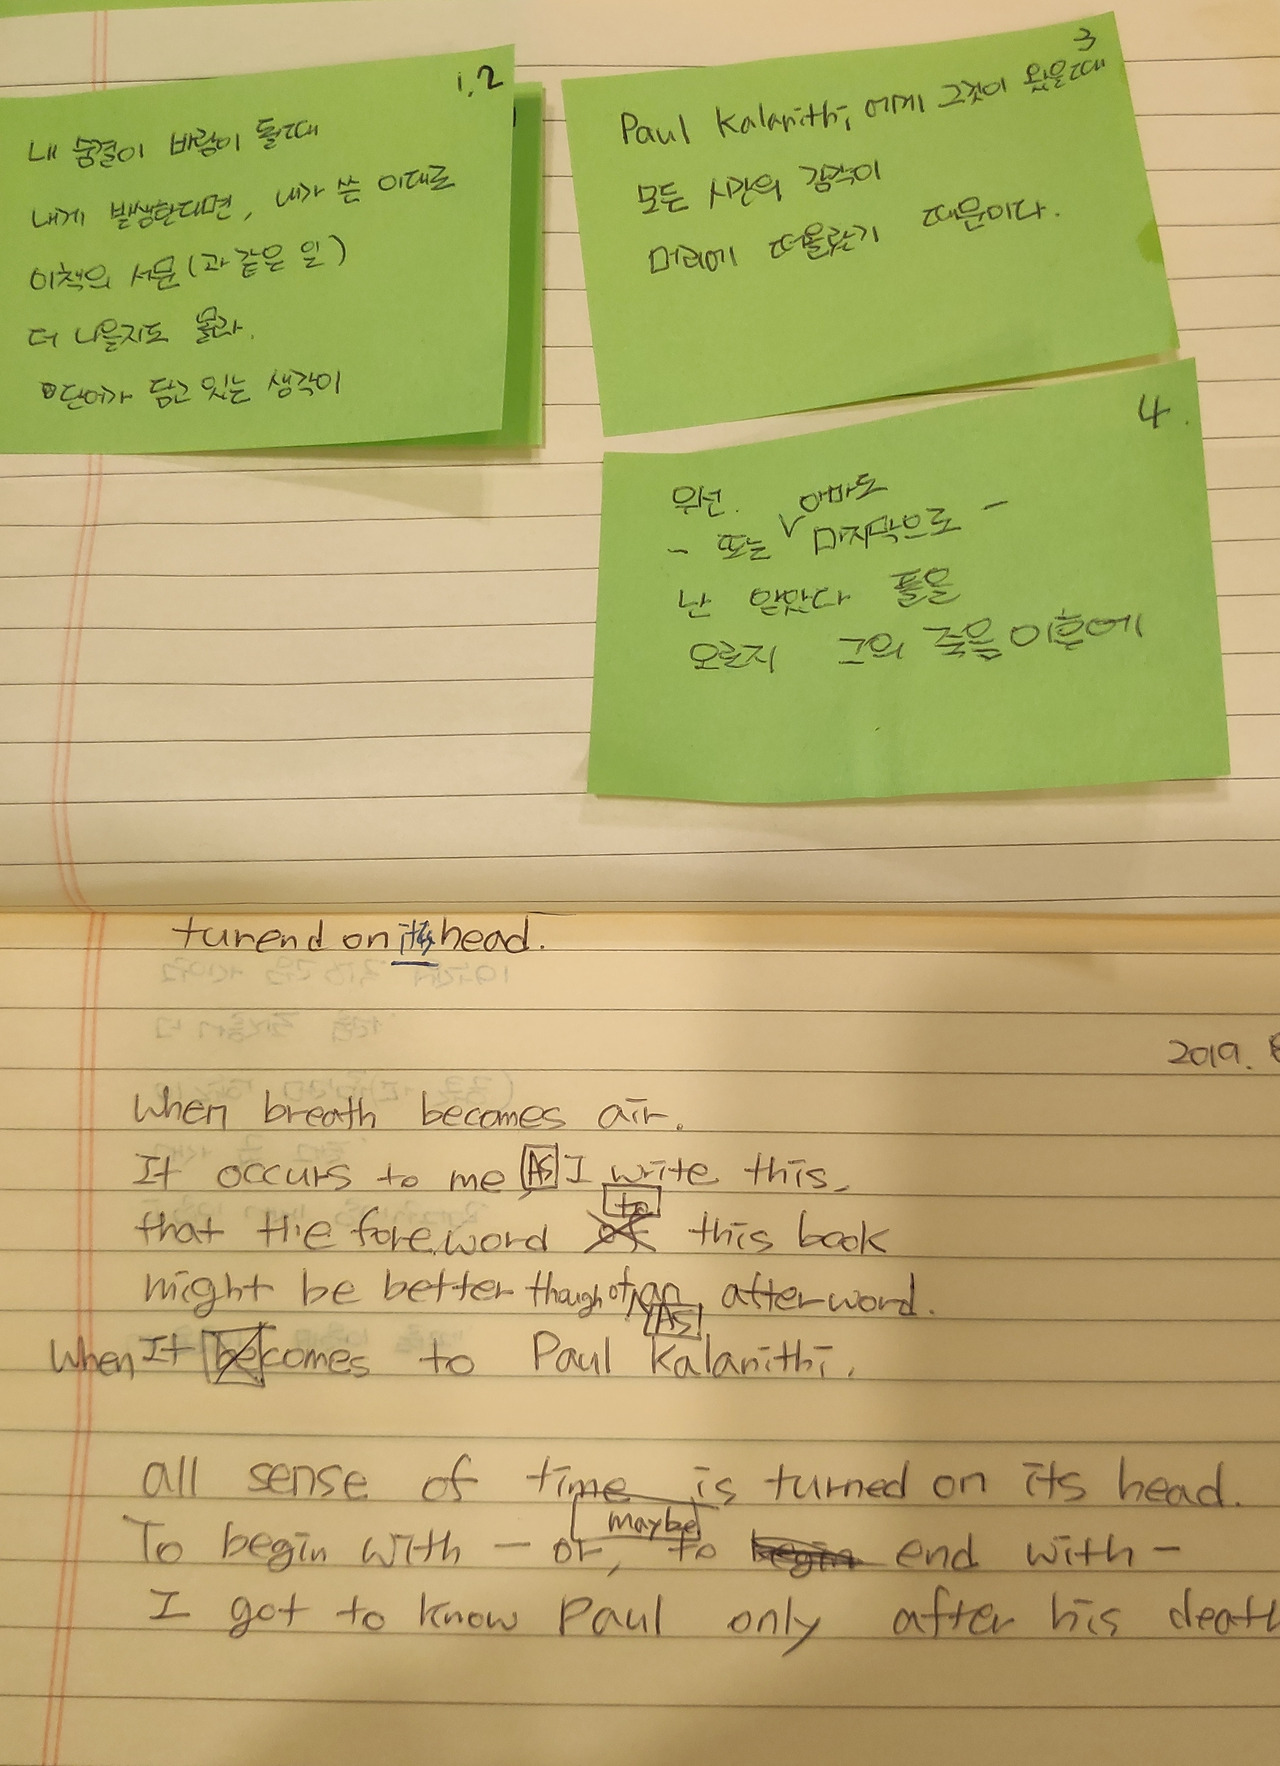 1,2
내 숨결이 바람이 될때
내게 발생한다면, 내가 쓴 이대로
이책의 서문(과 같은 일)
더 나을지도 몰라.
단어가 담고 있는 생각이
3
Paul Kalanithi, 에게 그것이 왔을때
모든 시간의 감각이
머리에 떠올랐기 때문이다.
4.
우선. 아마도
- 또는 ∨ 마지막으로 -
난 알았다 폴을
오로지 그의 죽음 이후에
turend on its head.
2019.
When breath becomes air.
It occurs to me, As I write this,
to
that the foreword of this book
might be better though of an afterword.
As
When It becomes to Paul Kalanithi,
all sense of time is turned on its head.
maybe
To begin with - or, to begin end with -
I got to know Paul only after his death